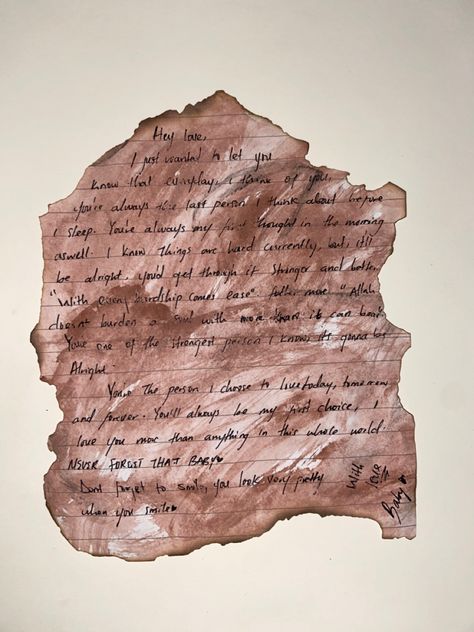 Hey love,
I just wanted to let you
know that everyday, i think of you,
you're always the last person i think about before
I sleep. You're always my first thought in the morning
aswell. I know things are hard currently, but, it'll
be alright, you'd get through it stronger and better.
"With every hardship comes ease" futher more "Allah
doesn't burden a soul with more than it can bear"
You're one of the strongest person I know, it's gonna be
Alright.
You're The person I choose to live today, tomorrow
and forever. You'll always be my first choice, I
love you more than anything in this whole world.
NEVER FORGET THAT BABY♥
Dont forget to smile, you look very pretty
when you smile♥
With
love
Baby♥